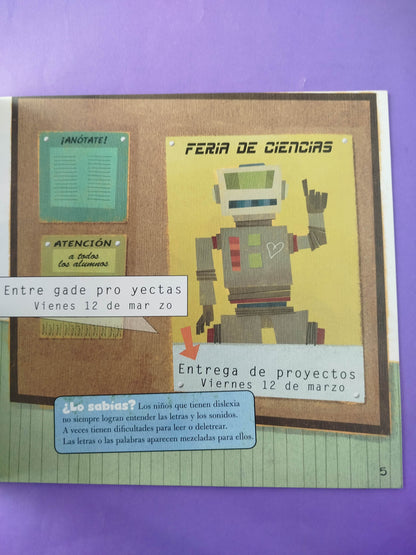 ¡ANÓTATE!
FERIA DE CIENCIAS
ATENCIÓN
a todos
los alumnos
Entre gade pro yectas
Vienes 12 de mar zo
Entrega de proyectos
Viernes 12 de marzo
¿Lo sabías? Los niños que tienen dislexia
no siempre logran entender las letras y los sonidos.
A veces tienen dificultades para leer o deletrear.
Las letras o las palabras aparecen mezcladas para ellos.
5